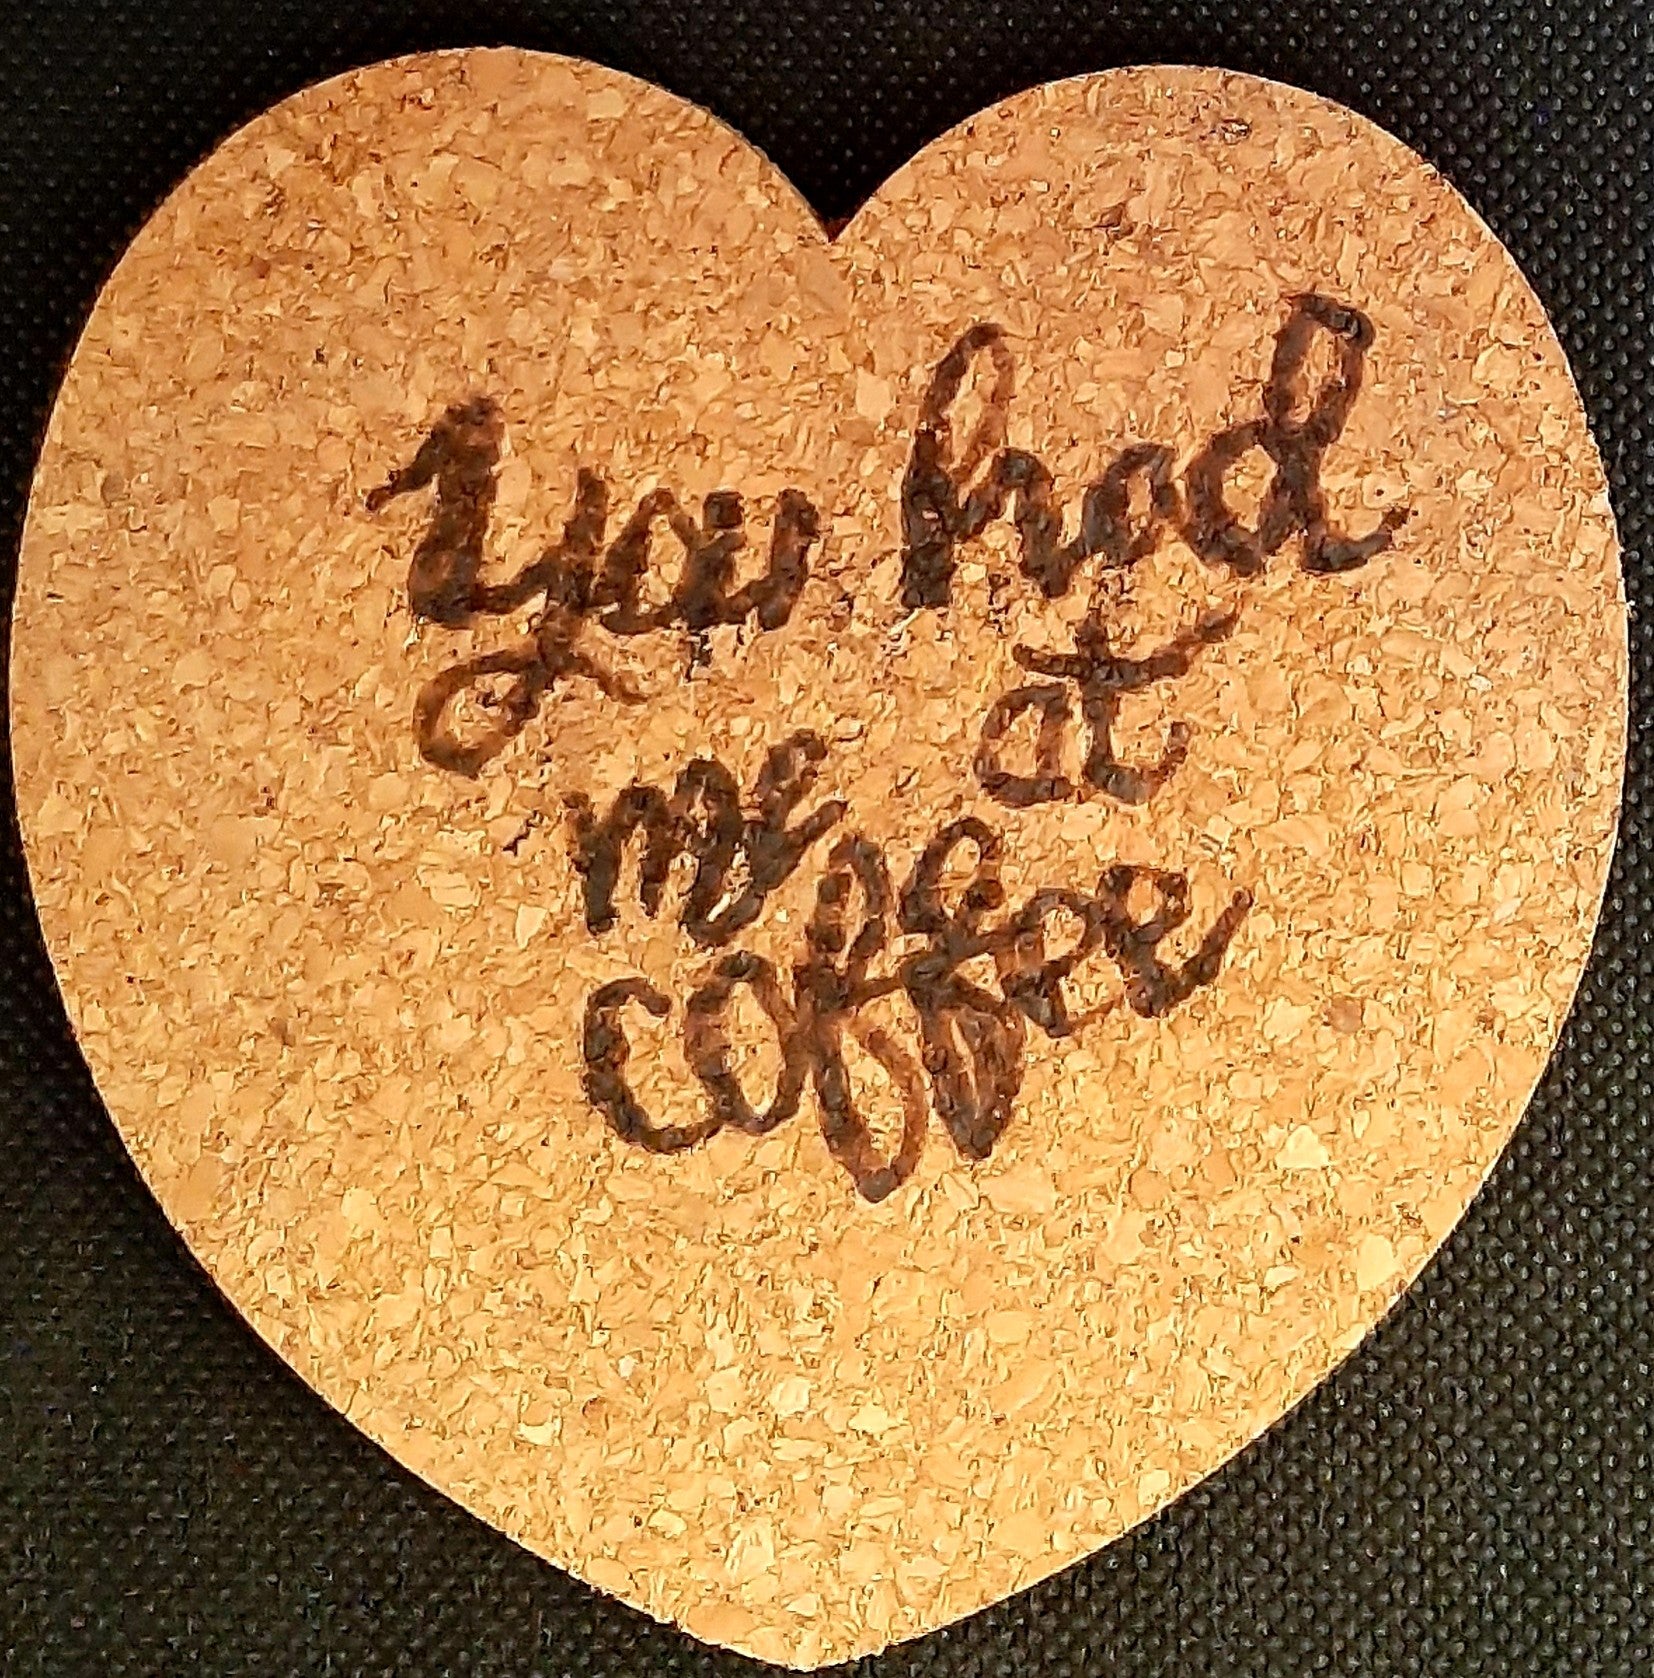 you had
at
me
coffee